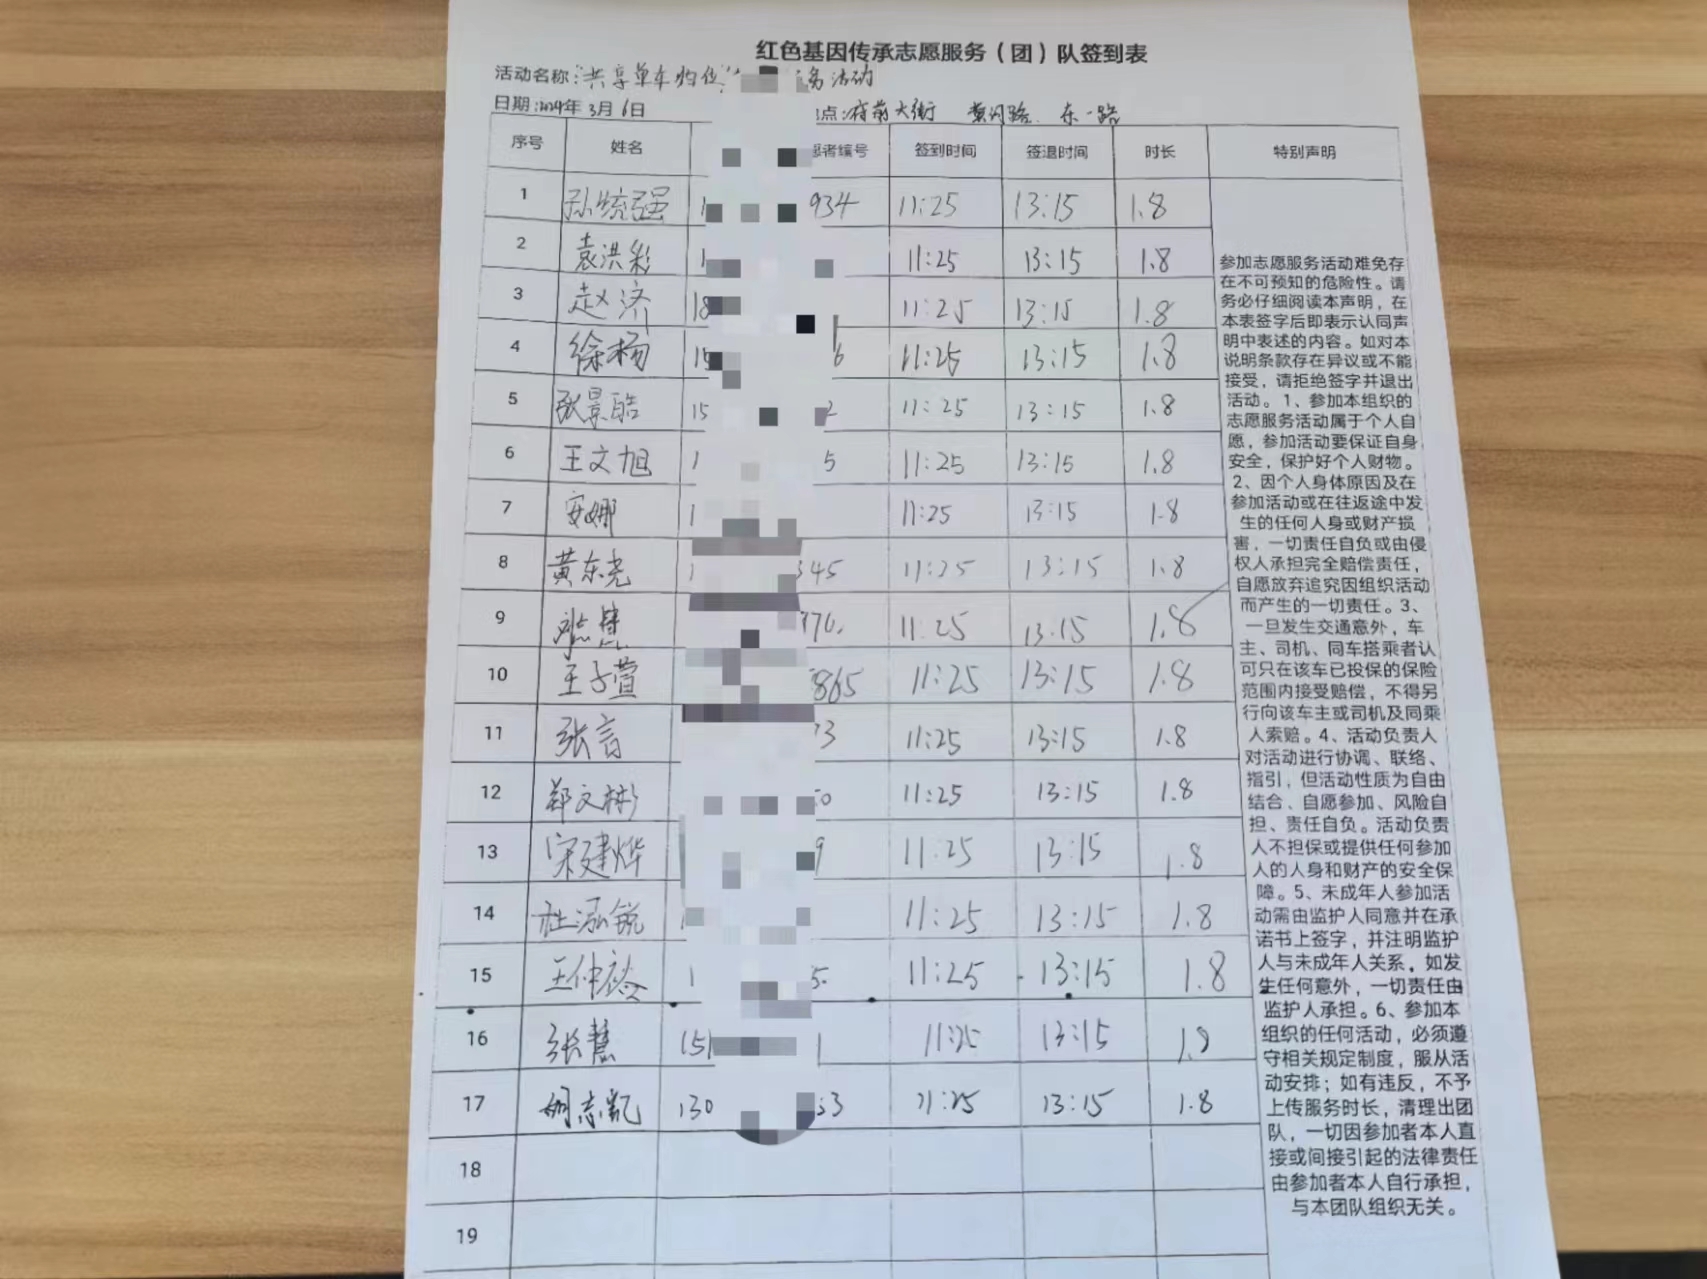 红色基因传承志愿服务（团）队签到表
活动名称：共享单车归位 务活动
日期：2024年3月6日 点：府前大街 黄河路 东一路
序号 姓名 愿者编号 签到时间 签退时间 时长 特别声明
1 孙统强 1 934 11:25 13:15 1.8
2 袁洪彩 1 11:25 13:15 1.8
3 赵济 18 11:25 13:15 1.8
4 徐杨 15 6 11:25 13:15 1.8
5 张景皓 15 2 11:25 13:15 1.8
6 王文旭 1 5 11:25 13:15 1.8
7 安娜 1 11:25 13:15 1.8
8 黄东尧 1 345 11:25 13:15 1.8
9 11:25 13:15 1.8
10 王子萱 865 11:25 13:15 1.8
11 张言 3 11:25 13:15 1.8
12 郑文彬 50 11:25 13:15 1.8
13 宋建烨 9 11:25 13:15 1.8
14 杜泓锐 11:25 13:15 1.8
15 王仲 1 5 11:25 13:15 1.8
16 张慧 151 1 11:25 13:15 1.8
17 胡志凯 130 53 11:25 13:15 1.8
18
19
参加志愿服务活动难免存
在不可预知的危险性。请
务必仔细阅读本声明，在
本表签字后即表示认同声
明中表述的内容。如对本
说明条款存在异议或不能
接受，请拒绝签字并退出
活动。1、参加本组织的
志愿服务活动属于个人自
愿，参加活动要保证自身
安全，保护好个人财物。
2、因个人身体原因及在
参加活动或在往返途中发
生的任何人身或财产损
害，一切责任自负或由侵
权人承担完全赔偿责任，
自愿放弃追究因组织活动
而产生的一切责任。3、
一旦发生交通意外，车
主、司机、同车搭乘者认
可只在该车已投保的保险
范围内接受赔偿，不得另
行向该车主或司机及同乘
人索赔。4、活动负责人
对活动进行协调、联络、
指引，但活动性质为自由
结合、自愿参加、风险自
担、责任自负。活动负责
人不担保或提供任何参加
人的人身和财产的安全保
障。5、未成年人参加活
动需由监护人同意并在承
诺书上签字，并注明监护
人与未成年人关系，如发
生任何意外，一切责任由
监护人承担。6、参加本
组织的任何活动，必须遵
守相关规定制度，服从活
动安排；如有违反，不予
上传服务时长，清理出团
队，一切因参加者本人直
接或间接引起的法律责任
由参加者本人自行承担，
与本团队组织无关。